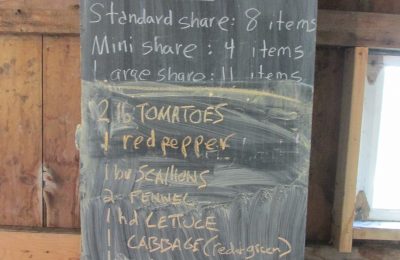 Standard share: 8 items
Mini share: 4 items
Large share: 11 items
2 lb TOMATOES
1 red pepper
1 bu SCALLIONS
2 FENNEL
1 hd LETTUCE
1 CABBAGE (red or green)